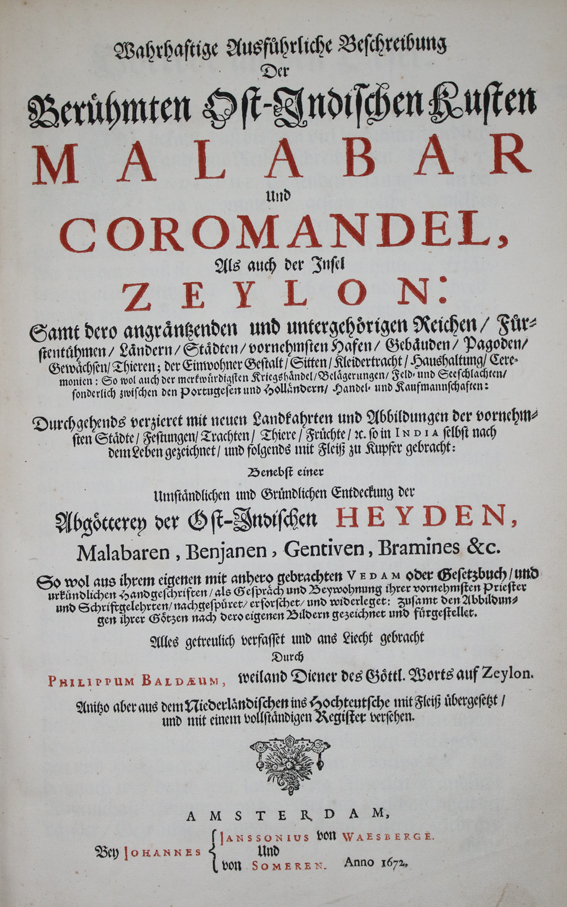 Wahrhaftige Ausführliche Beschreibung
Der
Berühmten Ost-Indischen Kusten
MALABAR
Und
COROMANDEL,
Als auch der Insel
ZEYLON:
Samt dero angräntzenden und untergehörigen Reichen/ Für-
stentühmen/ Ländern/ Städten/ vornehmsten Hafen/ Gebäuden/ Pagoden/
Gewächsen/ Thieren: der Einwohner Gestalt/ Sitten/ Kleidertracht/ Haushaltung/ Cere-
monien: So wol auch der merkwürdigsten Kriegshändel/ Belägerungen/ Feld- und Seeschlachten/
sonderlich zwischen den Portugesen und Holländern/ Handel- und Kaufmannschaften:
Durchgehends verzieret mit neuen Landkahrten und Abbildungen der vornehm-
sten Städte/ Festungen/ Trachten/ Thiere/ Früchte/ ꝛc. so in INDIA selbst nach
dem Leben gezeichnet/ und folgends mit Fleiß zu Kupfer gebracht:
Benebst einer
Umständlichen und Gründlichen Entdeckung der
Abgötterey der Ost-Indischen HEYDEN,
Malabaren, Benjanen, Gentiven, Bramines &c.
So wol aus ihrem eigenen mit anhero gebrachten VEDAM oder Gesetzbuch/ und
urkündlichen Handgeschriften/ als Gespräch und Beywohnung ihrer vornehmsten Priester
und Schriftgelehrten/ nachgespüret/ erforschet/ und widerleget: zusamt den Abbildun-
gen ihrer Götzen nach dero eigenen Bildern gezeichnet und fürgestellet.
Alles getreulich verfasset und ans Liecht gebracht
Durch
PHILIPPUM BALDÆUM, weiland Diener des Göttl. Worts auf Zeylon.
Anitzo aber aus dem Niederländischen ins Hochteutsche mit Fleiß übergesetzt/
und mit einem vollständigen Register versehen.
AMSTERDAM,
Bey JOHANNES { JANSSONIUS von WAESBERGE.
Und
von SOMEREN. Anno 1672.